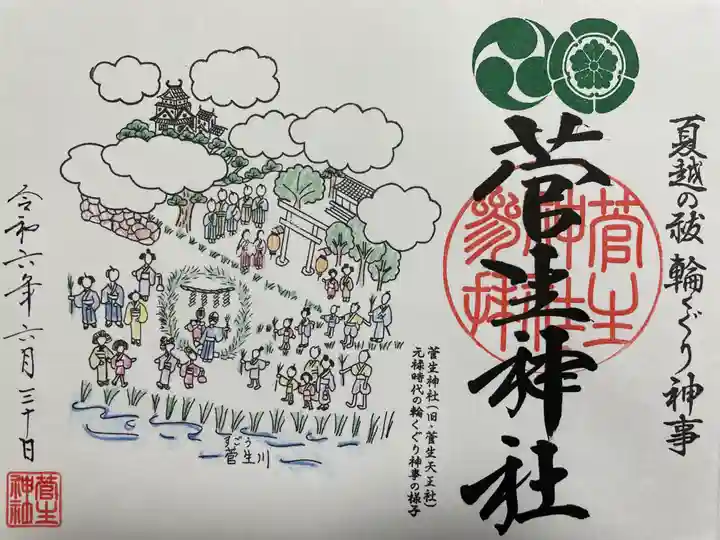 夏越の祓 輪くぐり神事
菅生神社
菅生神社参拝
菅生神社(旧・菅生天王社)
元禄時代の輪くぐり神事の様子
すごう
菅生川
令和六年六月三十日
菅生神社